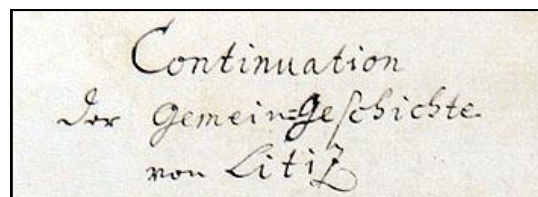 Continuation
der Gemein=Geſchichte
von Litiz